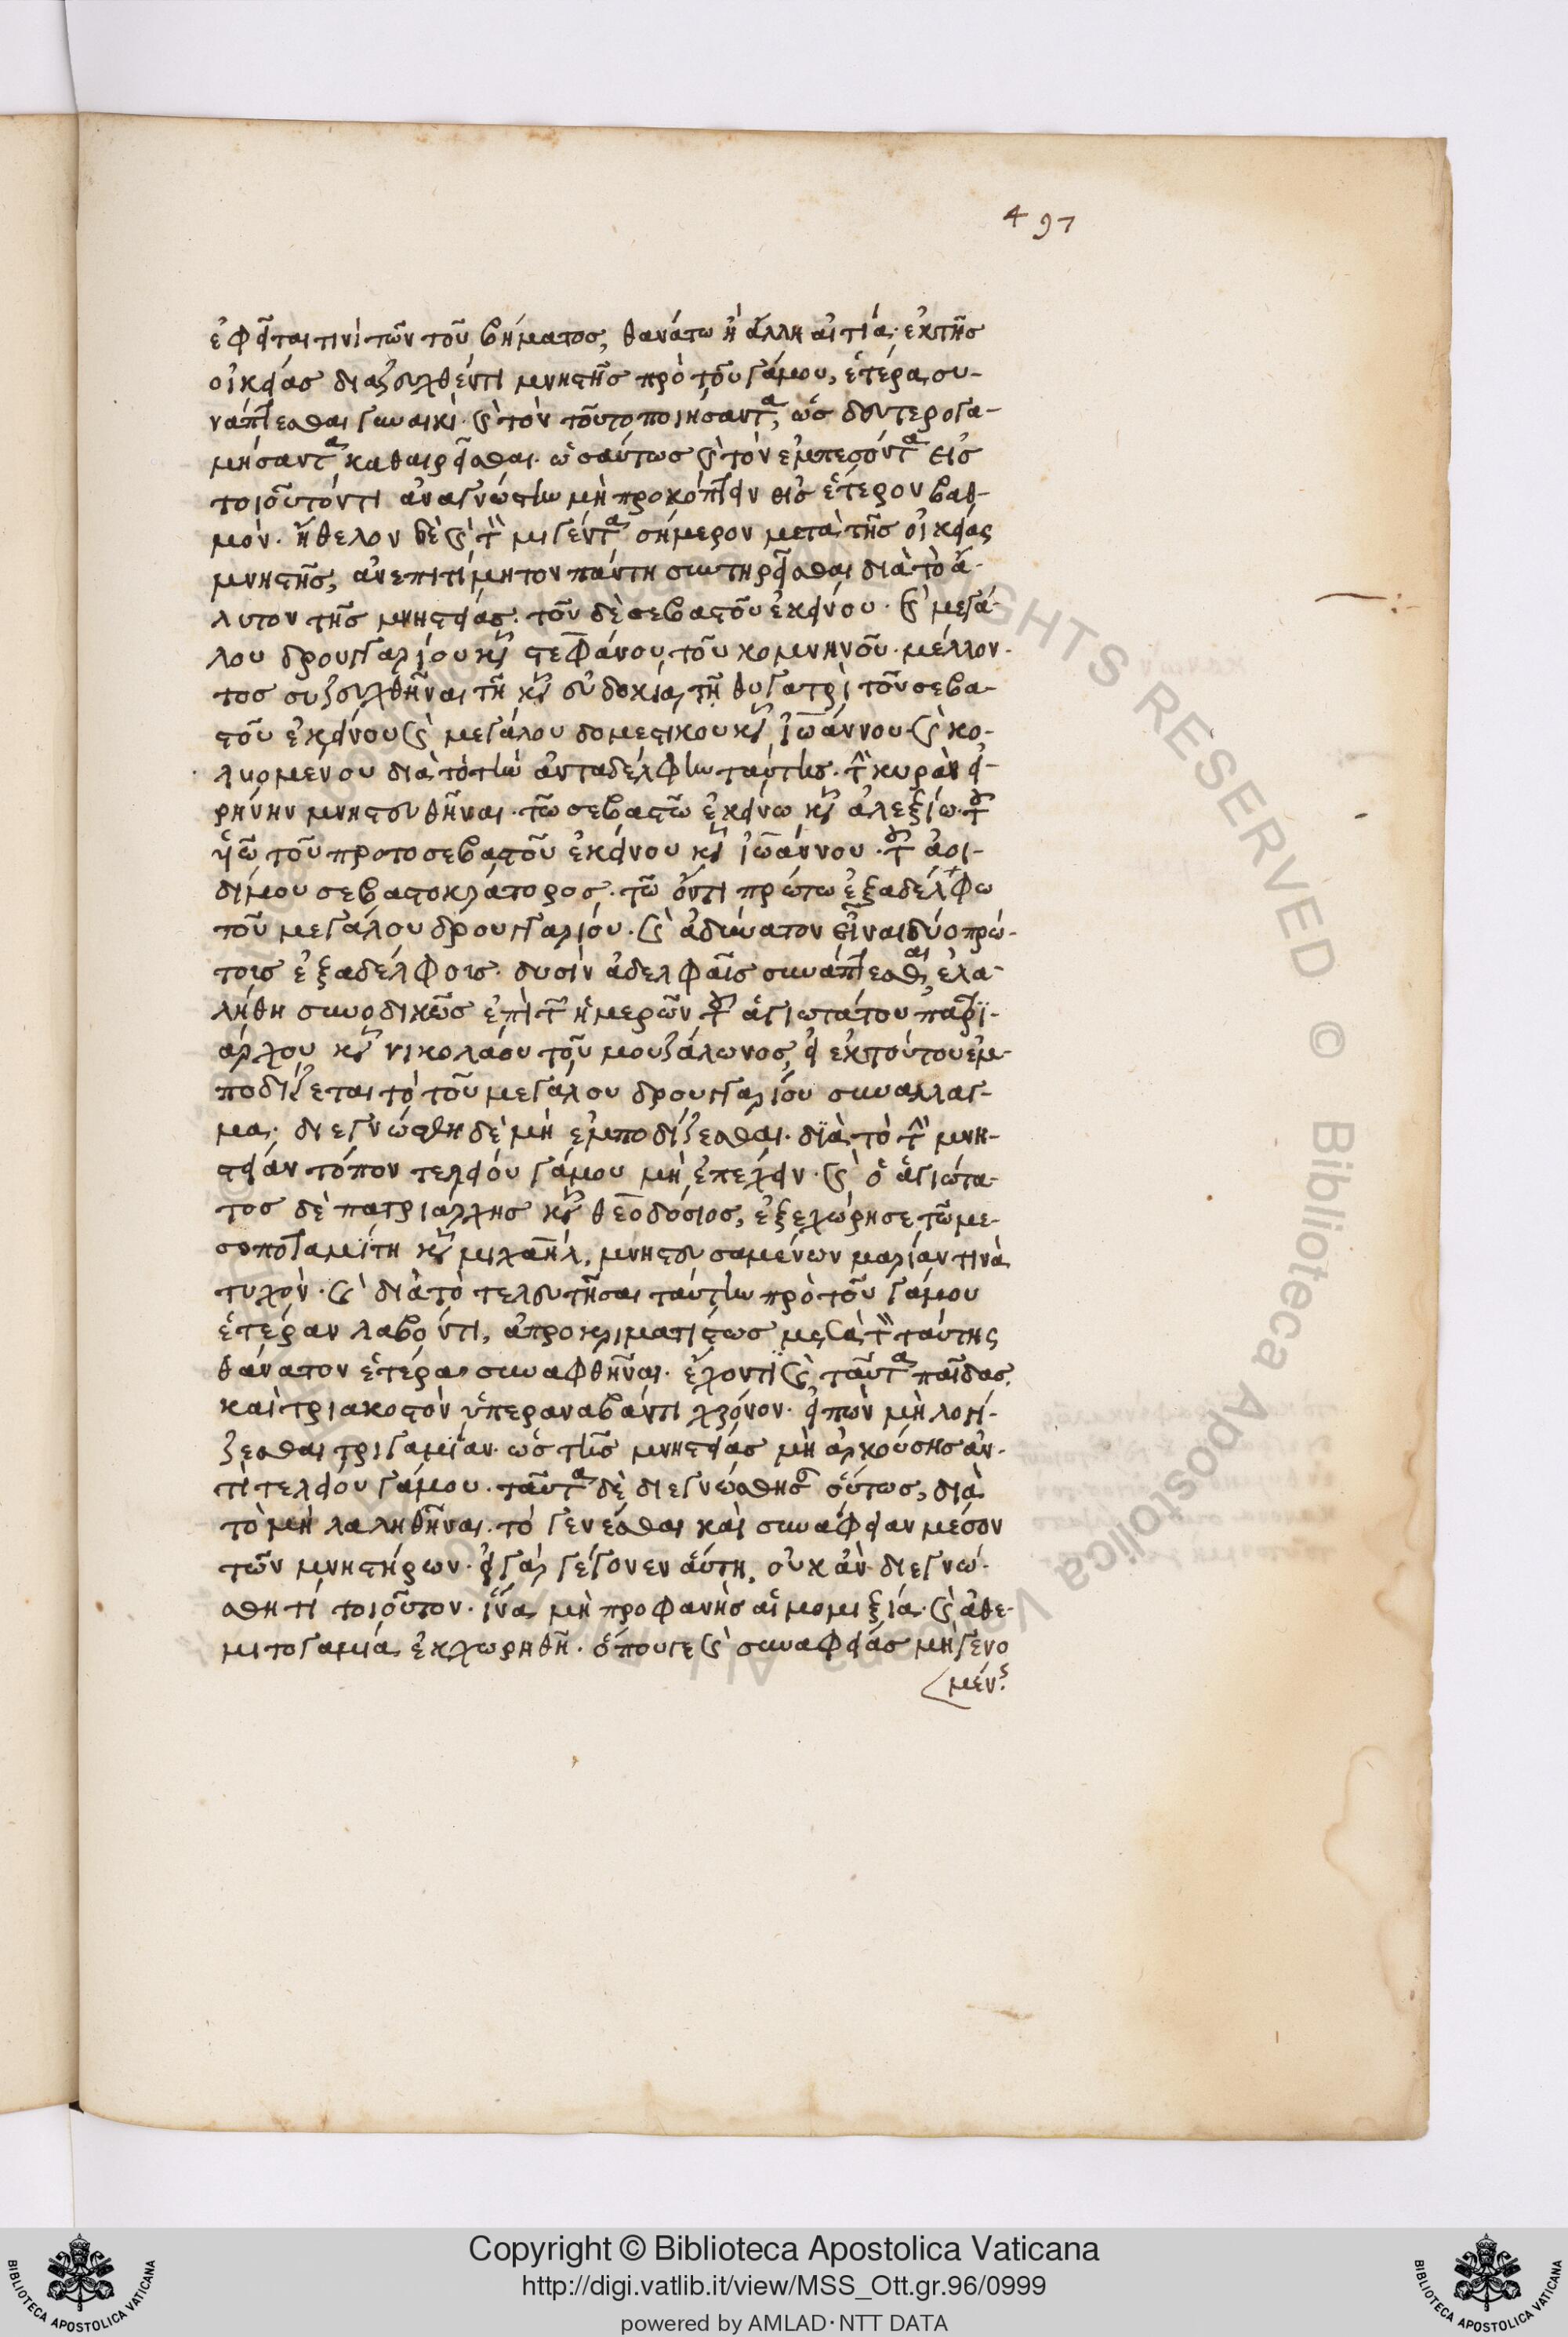 497
ἐφεῖται τινὶ τῶν τοῦ βήματος, θανάτω ἢ ἄλλη αἰτία· ἐκ τῆς
οἰκείας διαζευχθέντι μνηστῆς πρὸ τοῦ γάμου, ἑτέρα συ-
νάπτεσθαι γυναικί· καὶ τὸν τοῦτο ποιήσαντα, ὡς δευτερογα-
μήσαντα καθαιρεῖσθαι· ὡσαύτως καὶ τὸν ἐμπεσόντα εἰς
τοιοῦτόν τι ἀναγνώστην μὴ προκόπτειν εἰς ἕτερον βαθ-
μόν· ἤθελον δὲ καὶ τὸν μιγέντα σήμερον μετὰ τῆς οἰκείας
μνηστῆς, ἀνεπιτίμητον πάντη συντηρεῖσθαι διὰ τὸ ἄ-
λυτον τῆς μνηστείας· τοῦ δὲ σεβαστοῦ ἐκείνου· καὶ μεγά-
λου δρουγγαρίου κυροῦ στεφάνου τοῦ κομνηνοῦ· μέλλον-
τος συζευχθῆναι τῆ κυρᾶ εὐδοκία τῆ θυγατρὶ τοῦ σεβα-
στοῦ ἐκείνου καὶ μεγάλου δομεστίκου κυροῦ ἰωάννου· καὶ κω-
λυομένου διὰ τὸ τὴν αὐταδέλφην ταύτης· τὴν κυρὰν εἰ-
ρήνην μνηστευθῆναι· τῶ σεβαστῶ ἐκείνω κυρῶ ἀλεξίω· τῶ
υἱῶ τοῦ πρωτοσεβαστοῦ ἐκείνου κυροῦ ἰωάννου· τοῦ ἀοι-
δίμου σεβαστοκράτορος· τῶ ὄντι πρώτω ἐξαδέλφω
τοῦ μεγάλου δρουγγαρίου· καὶ ἀδύνατον εἶναι δύο πρώ-
τοις ἐξαδέλφοις· δυσὶν ἀδελφαῖς συνάπτεσθαι, ἐλα-
λήθη συνοδικῶς ἐπὶ τῶν ἡμερῶν τοῦ ἁγιωτάτου πατρι-
άρχου κυροῦ νικολάου τοῦ μουζάλωνος, εἰ ἐκ τούτου ἐμ-
ποδίζεται τὸ τοῦ μεγάλου δρουγγαρίου συνάλλαγ-
μα· διεγνώσθη δὲ μὴ ἐμποδίζεσθαι· διὰ τὸ τὴν μνη-
στείαν τόπον τελείου γάμου μὴ ἐπέχειν· καὶ ὁ ἁγιώτα-
τος δὲ πατριάρχης κυρὸς θεοδόσιος, ἐξεχώρησε τῶ με-
σοποταμίτη κυρῶ μιχαήλ, μνηστευσαμένων μαρίαν τινὰ
τυχὸν· καὶ διὰ τὸ τελευτῆσαι ταύτην πρὸ τοῦ γάμου
ἑτέραν λαβόντι, ἀπροκριματίστως μετὰ τὸν ταύτης
θάνατον ἑτέρα συναφθῆναι· ἔχοντι καὶ ταῦτα παῖδας.
καὶ τριακοστὸν ὑπεραναβάντι χρόνον· εἰπὼν μὴ λογί-
ζεσθαι τριγαμίαν· ὡς τῆς μνηστείας μὴ ἀρκούσης ἀν-
τὶ τελείου γάμου· ταῦτα δὲ διεγνώσθησαν οὕτως, διὰ
τὸ μὴ λαληθῆναι· τὸ γενέσθαι καὶ συνάφειαν μέσον
τῶν μνηστήρων· εἰ γὰρ γέγονεν αὕτη, οὐκ ἂν διεγνώ-
σθη τί τοιοῦτον· ἵνα μὴ προφανὴς αἱμομιξία· καὶ ἀθε-
μιτογαμία ἐκχωρηθῆ· ὅπου γε καὶ συναφείας μὴ γενο
μένης